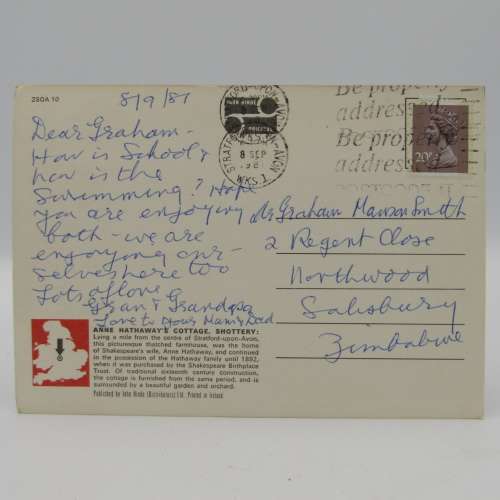 2SOA 10
8/9/81
Dear Graham -
How is School &
how is the
Swimming? Hope
you are enjoying
both - we are
enjoying our-
selves here too
Lots of love
Gran & Grandpa
Love to your Mam & Dad
ANNE HATHAWAY'S COTTAGE, SHOTTERY:
Lying a mile from the centre of Stratford-upon-Avon,
this picturesque thatched farmhouse, was the home
of Shakespeare's wife, Anne Hathaway, and continued
in the possession of the Hathaway family until 1892,
when it was purchased by the Shakespeare Birthplace
Trust. Of traditional sixteenth century construction,
the cottage is furnished from the same period, and is
surrounded by a beautiful garden and orchard.
Published by John Hinde (Distributors) Ltd. Printed in Ireland
STRATFORD-UPON-AVON
8 SEP
1981
WKS. 1
Be properly
addressed
Be properly
addressed
20p
Mr Graham Manson Smith
2 Regent Close
Northwood
Salisbury
Zimbabwe